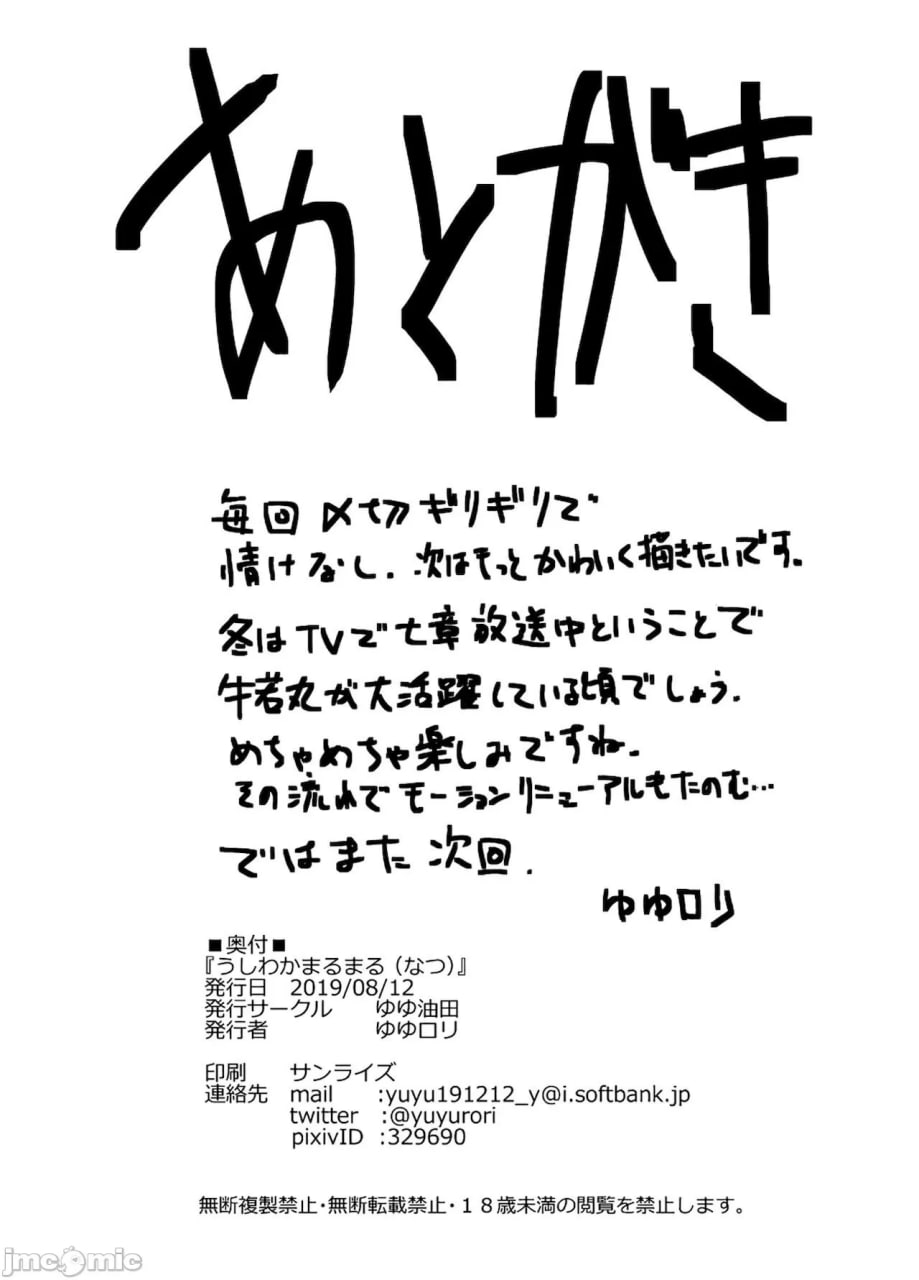 あとがき
毎回〆切ギリギリで
情けなし.次はもっとかわいく描きたいです。
冬はTVで七章放送中ということで
牛若丸が大活躍している頃でしょう.
めちゃめちゃ楽しみですね.
その流れでモーションリニューアルもたのむ…
ではまた次回.
ゆゆロリ
■奥付■
『うしわかまるまる（なつ）』
発行日 2019/08/12
発行サークル ゆゆ油田
発行者 ゆゆロリ
印刷 サンライズ
連絡先 mail :yuyu191212_y@i.softbank.jp
twitter :@yuyurori
pixivID :329690
無断複製禁止・無断転載禁止・１８歳未満の閲覧を禁止します。
jmcomic